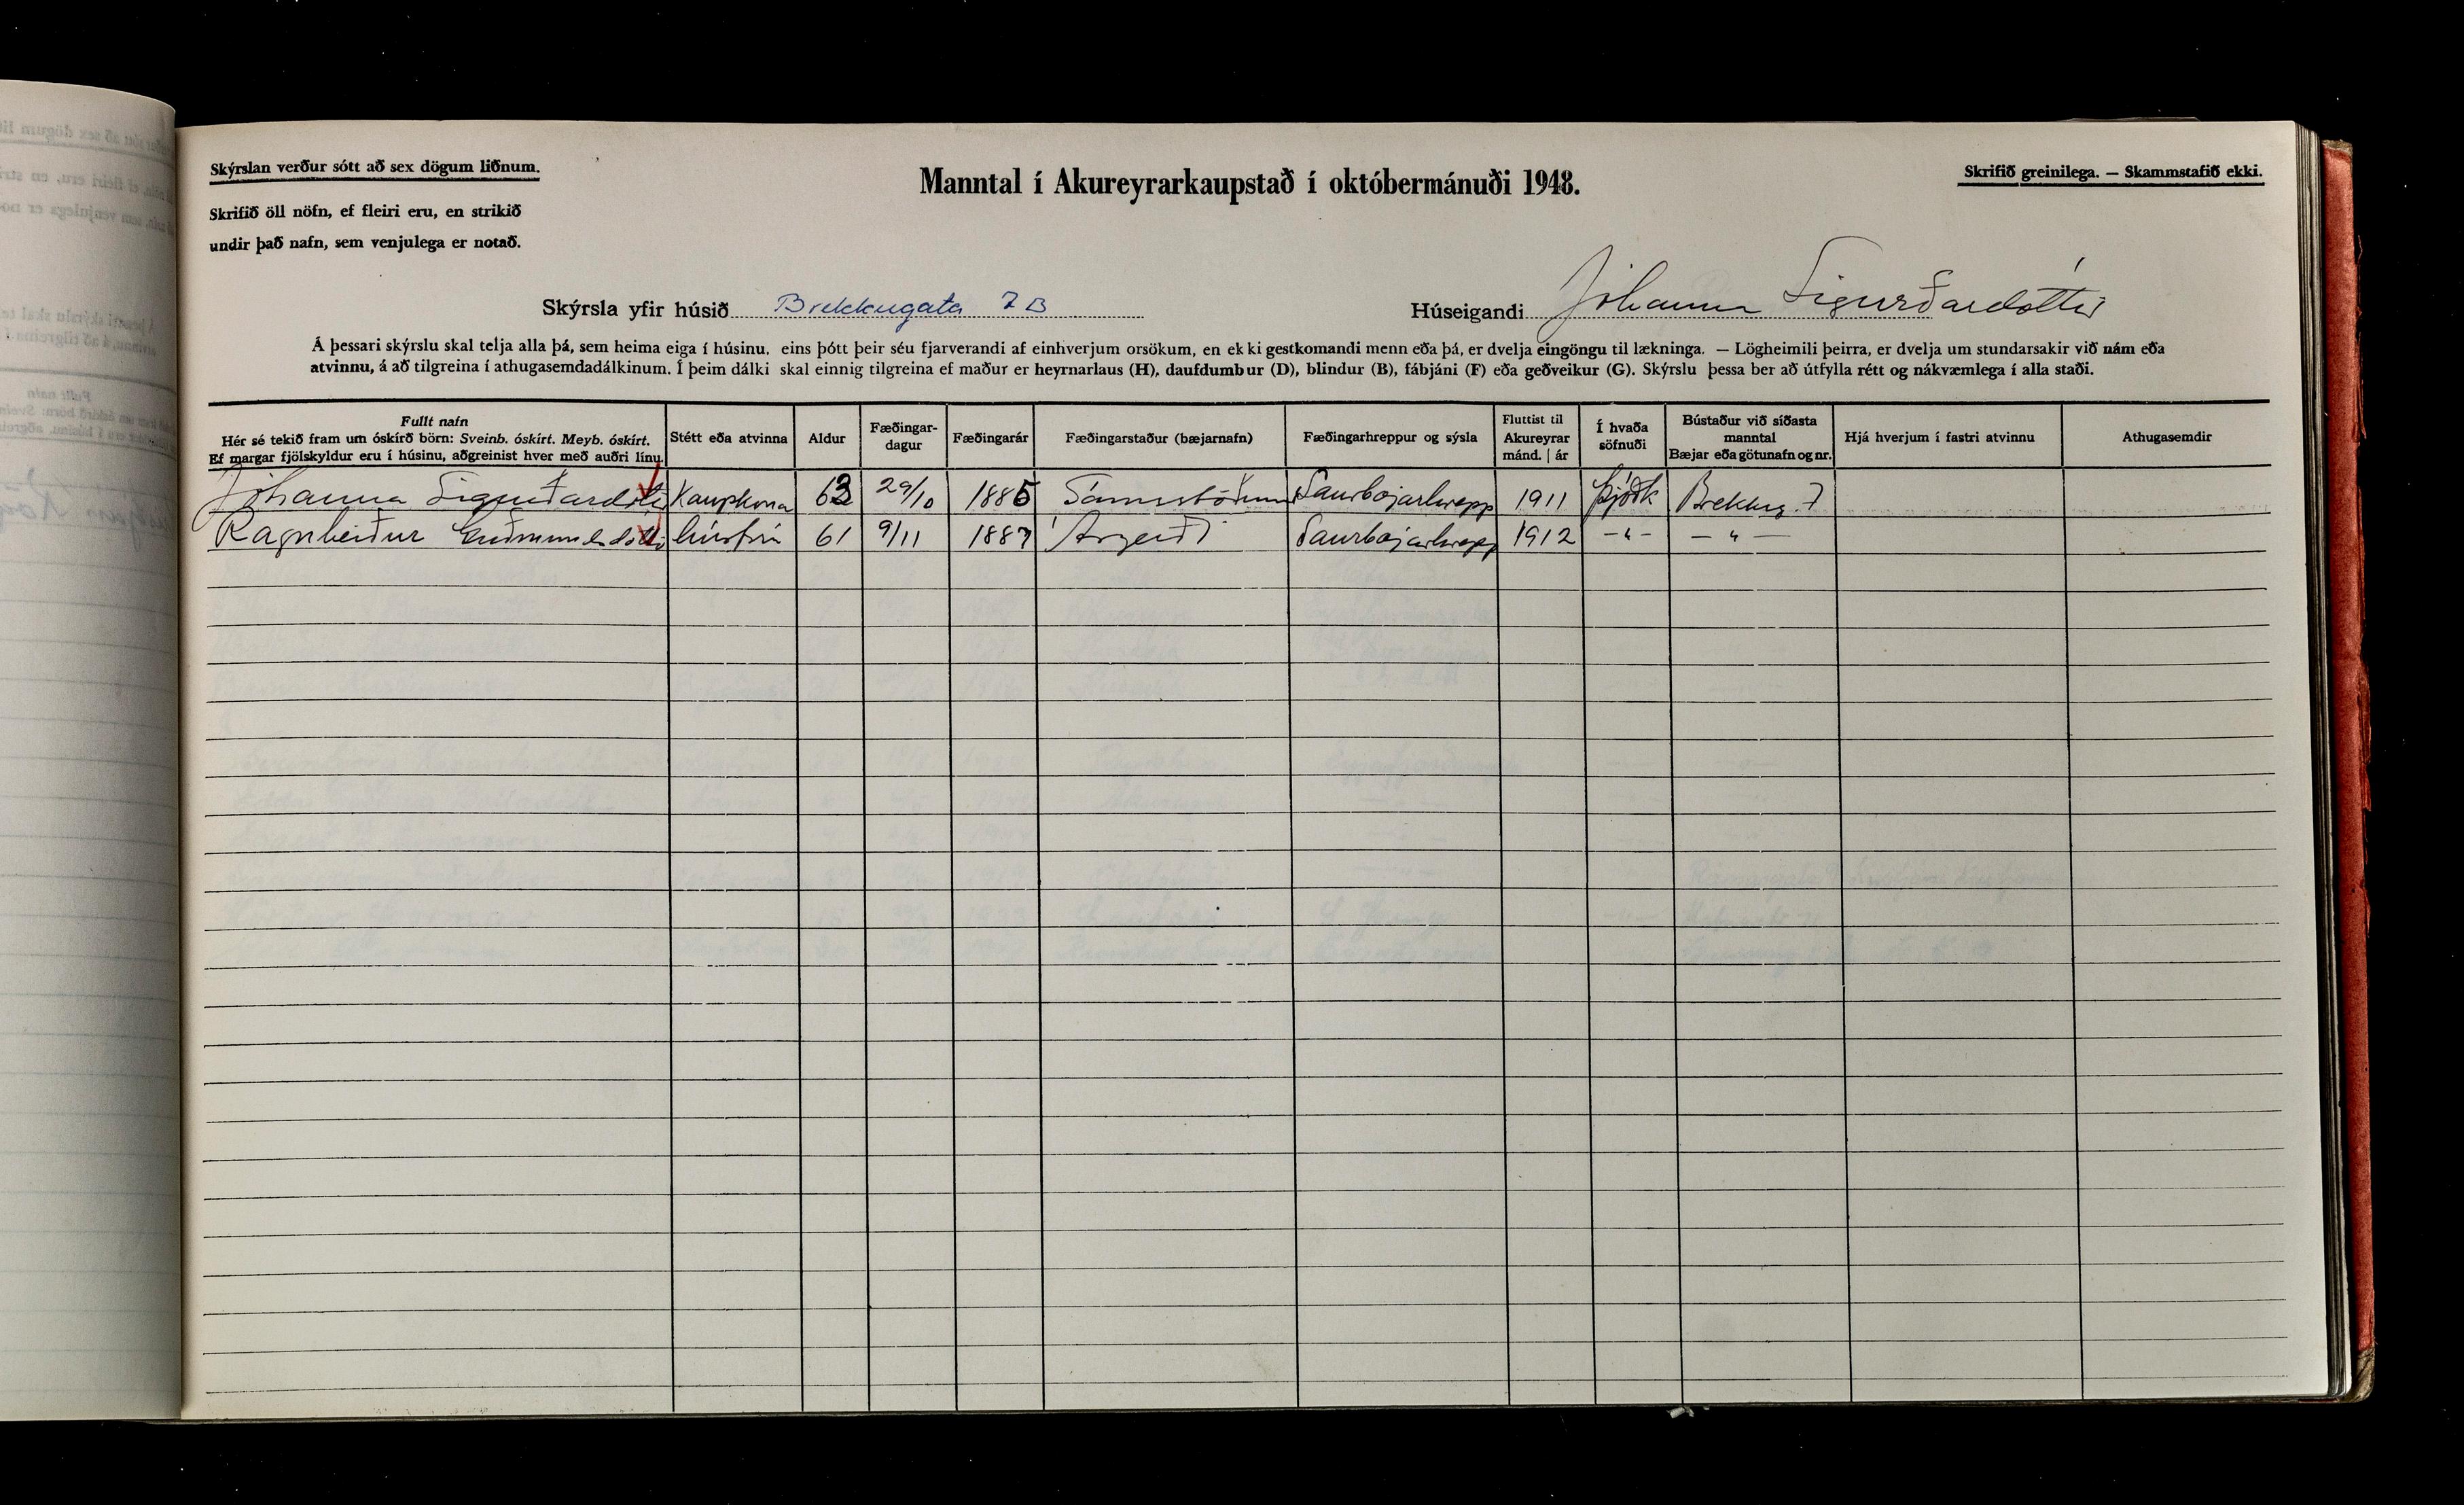 Skýrslan verður sótt að sex dögum liðnum.
Skrifið öll nöfn, ef fleiri eru, en strikið
undir það nafn, sem venjulega er notað.
Manntal í Akureyrarkaupstað í októbermánuði 1948.
Skrifið greinilega. — Skammstafið ekki.
Skýrsla yfir húsið Brekkugata 7B
Húseigandi Jóhanna Sigurðardóttir
Á þessari skýrslu skal telja alla þá, sem heima eiga í húsinu, eins þótt þeir séu fjarverandi af einhverjum orsökum, en ekki gestkomandi menn eða þá, er dvelja eingöngu til lækninga. — Lögheimili þeirra, er dvelja um stundarsakir við nám eða
atvinnu, á að tilgreina í athugasemdadálkinum. Í þeim dálki skal einnig tilgreina ef maður er heyrnarlaus (H), daufdumbur (D), blindur (B), fábjáni (F) eða geðveikur (G). Skýrslu þessa ber að útfylla rétt og nákvæmlega í alla staði.
Fullt nafn
Hér sé tekið fram um óskírð börn: Sveinb. óskírt. Meyb. óskírt.
Ef margar fjölskyldur eru í húsinu, aðgreinist hver með auðri línu.
Stétt eða atvinna
Aldur
Fæðingar-
dagur
Fæðingarár
Fæðingarstaður (bæjarnafn)
Fæðingarhreppur og sýsla
Fluttist til
Akureyrar
mánd. | ár
Í hvaða
söfnuði
Bústaður við síðasta
manntal
Bæjar eða götunafn og nr.
Hjá hverjum í fastri atvinnu
Athugasemdir
Jóhanna Sigurðardóttir Kaupkona 63 29/10 1885 Saurbæjarhrepp 1911 Þjóðk Brekkug. 7
Ragnheiður Guðmundsdóttir húsfrú 61 9/11 1887 Árgerði Saurbæjarhrepp 1912 -"- -"-